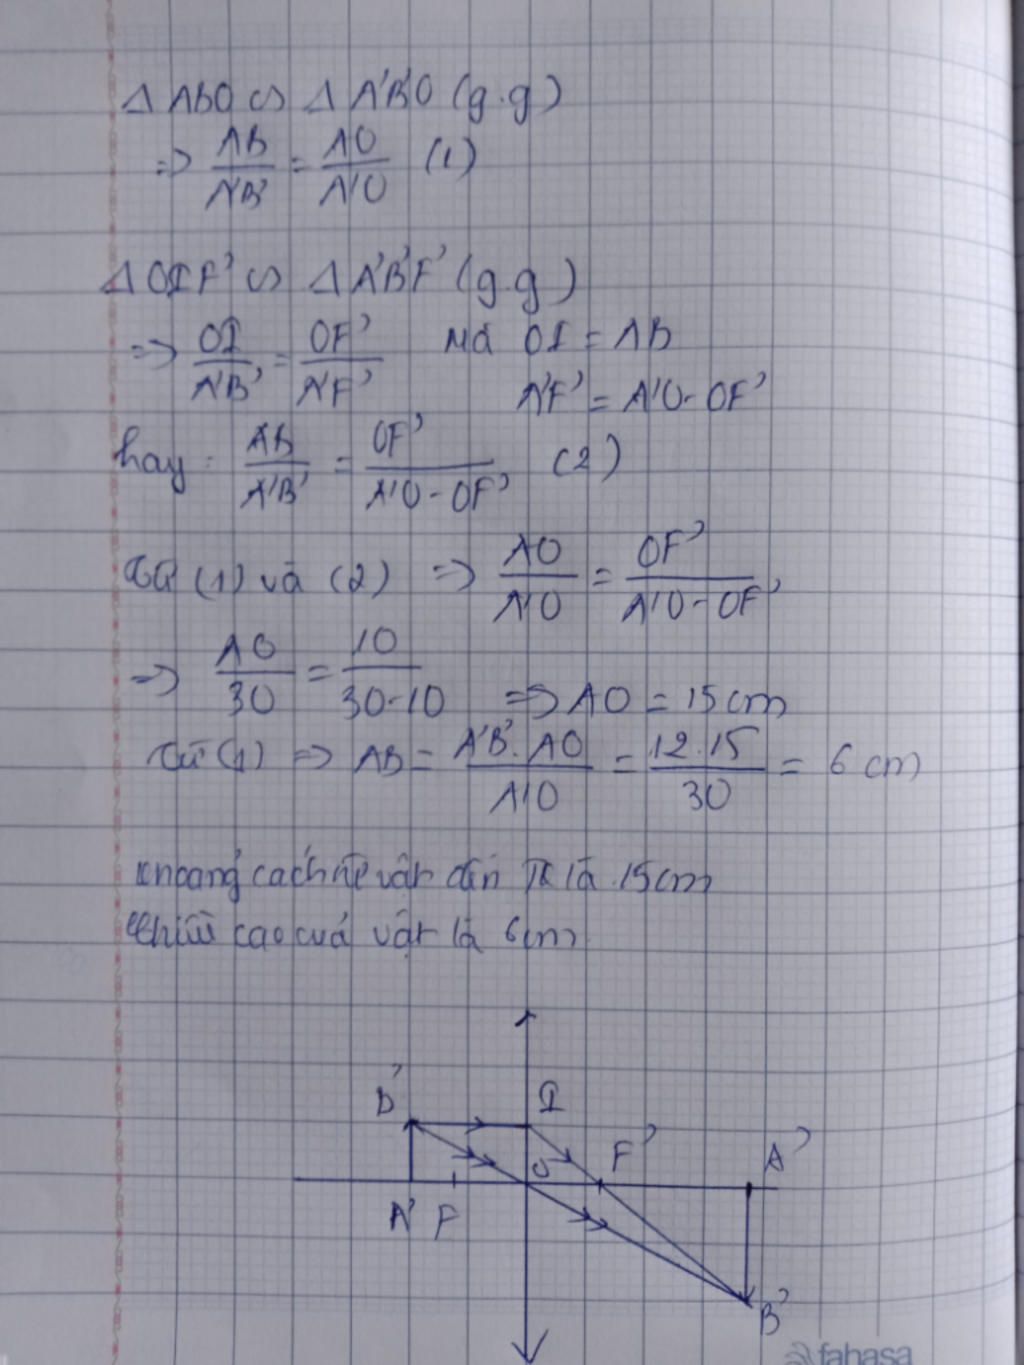 Δ ABO ∽ Δ A'B'O (g.g)
=> AB/A'B' = AO/A'O (1)
Δ OIF' ∽ Δ A'B'F' (g.g)
=> OI/A'B' = OF'/A'F' Mà OI = AB
A'F' = A'O - OF'
hay : AB/A'B' = OF'/A'O - OF' (2)
Từ (1) và (2) => AO/A'O = OF'/A'O - OF'
=> AO/30 = 10/30-10 => AO = 15cm
Từ (1) => AB = A'B'. AO/A'O = 12.15/30 = 6 cm
khoảng cách từ vật đến TK là 15cm
Chiều cao của vật là 6cm
B' I
O F' A'
A' F
B'
fahasa